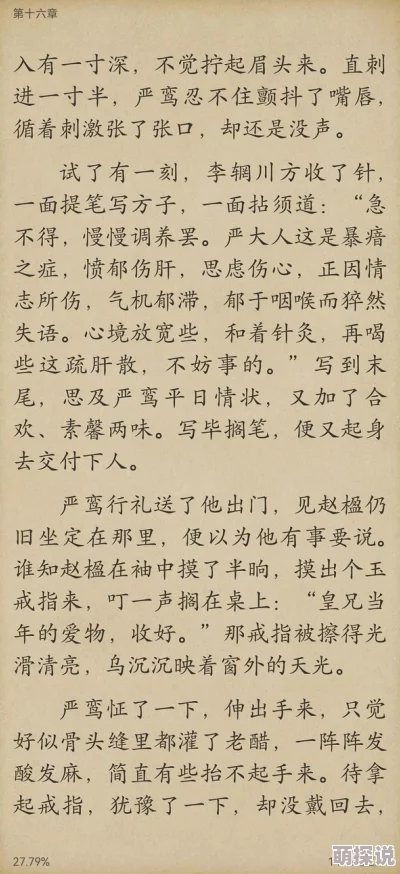 第十六章
入有一寸深，不觉拧起眉头来。直刺
进一寸半，严鸾忍不住颤抖了嘴唇，
循着刺激张了张口，却还是没声。
试了有一刻，李辋川方收了针，
一面提笔写方子，一面拈须道：“急
不得，慢慢调养罢。严大人这是暴瘖
之症，愤郁伤肝，思虑伤心，正因情
志所伤，气机郁滞，郁于咽喉而猝然
失语。心境放宽些，和着针灸，再喝
些这疏肝散，不妨事的。”写到末
尾，思及严鸾平日情状，又加了合
欢、素馨两味。写毕搁笔，便又起身
去交付下人。
严鸾行礼送了他出门，见赵楹仍
旧坐定在那里，便以为他有事要说。
谁知赵楹在袖中摸了半晌，摸出个玉
戒指来，叮一声搁在桌上：“皇兄当
年的爱物，收好。”那戒指被擦得光
滑清亮，乌沉沉映着窗外的天光。
严鸾怔了一下，伸出手来，只觉
好似骨头缝里都灌了老醋，一阵阵发
酸发麻，简直有些抬不起手来。待拿
起戒指，犹豫了一下，却没戴回去，
27.79%
萌探说